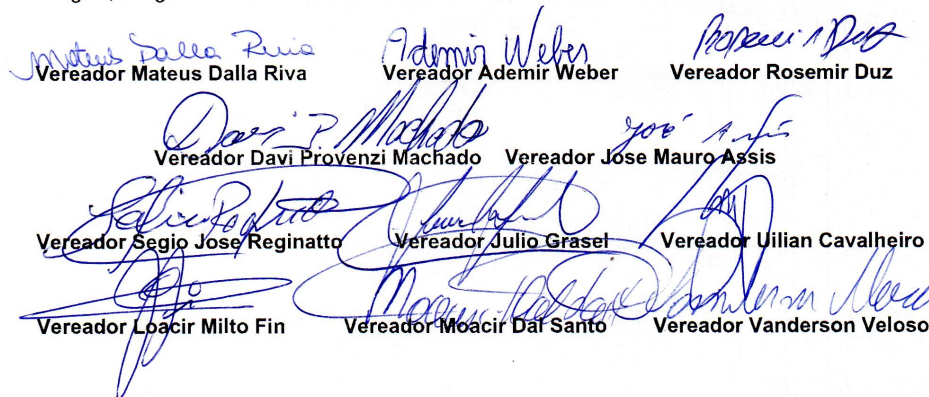 Mateus Dalla Riva Ademir Weber Rosemir Duz
Vereador Mateus Dalla Riva Vereador Ademir Weber Vereador Rosemir Duz
Davi P. Machado José
Vereador Davi Provenzi Machado Vereador Jose Mauro Assis
Vereador Segio Jose Reginatto Vereador Julio Grasel Vereador Uilian Cavalheiro
Vereador Loacir Milto Fin Vereador Moacir Dal Santo Vereador Vanderson Veloso